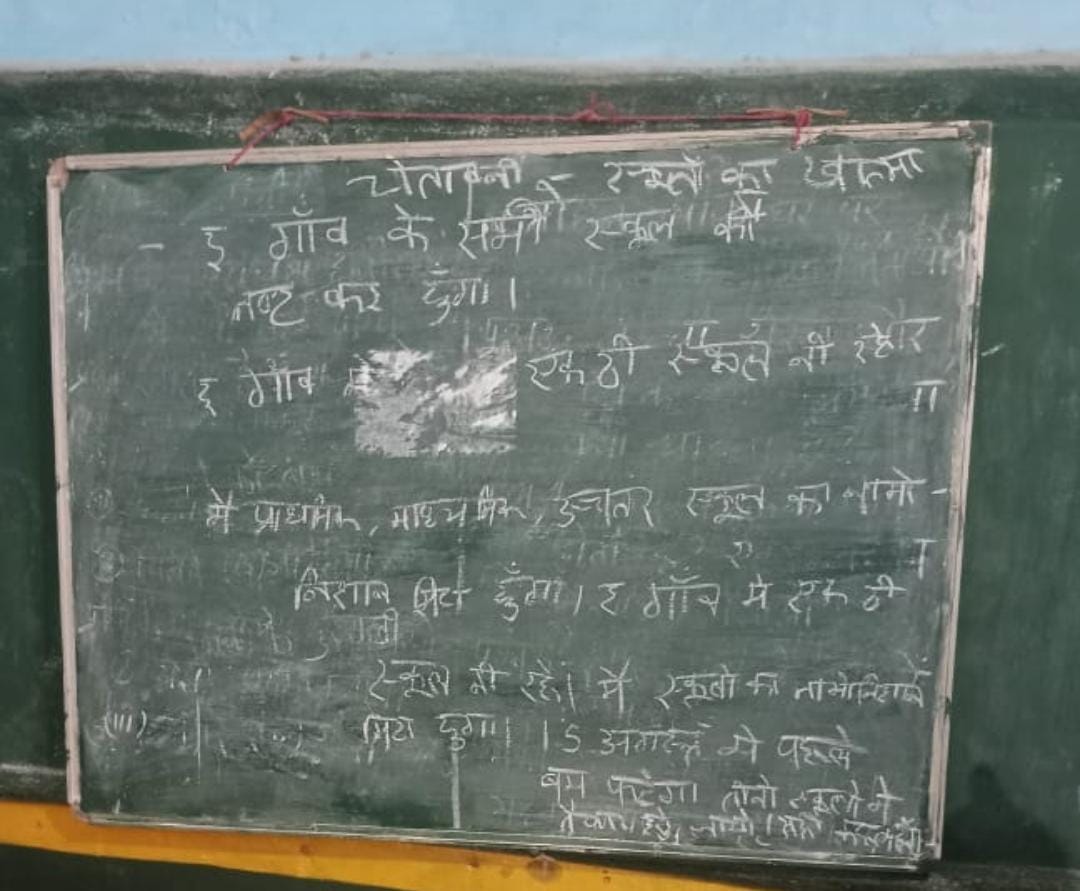 चेतावनी - स्कूलो का खात्मा
- इ गाँव के सभी स्कूल को
नष्ट कर दुँगा।
इ गाँव एक ठी स्कूल नी रहेर
मै प्राथमिक, माध्यमिक, उच्चतर स्कूल का नामो-
निशान मिटा दुँगा। इ गाँव मे एक ठी
स्कूल नी रहे। मैं स्कूलो का नामोनिशान
मिटा दुगा। 15 अगस्त से पहले
बम फटेगा तीनो स्कूलो मे